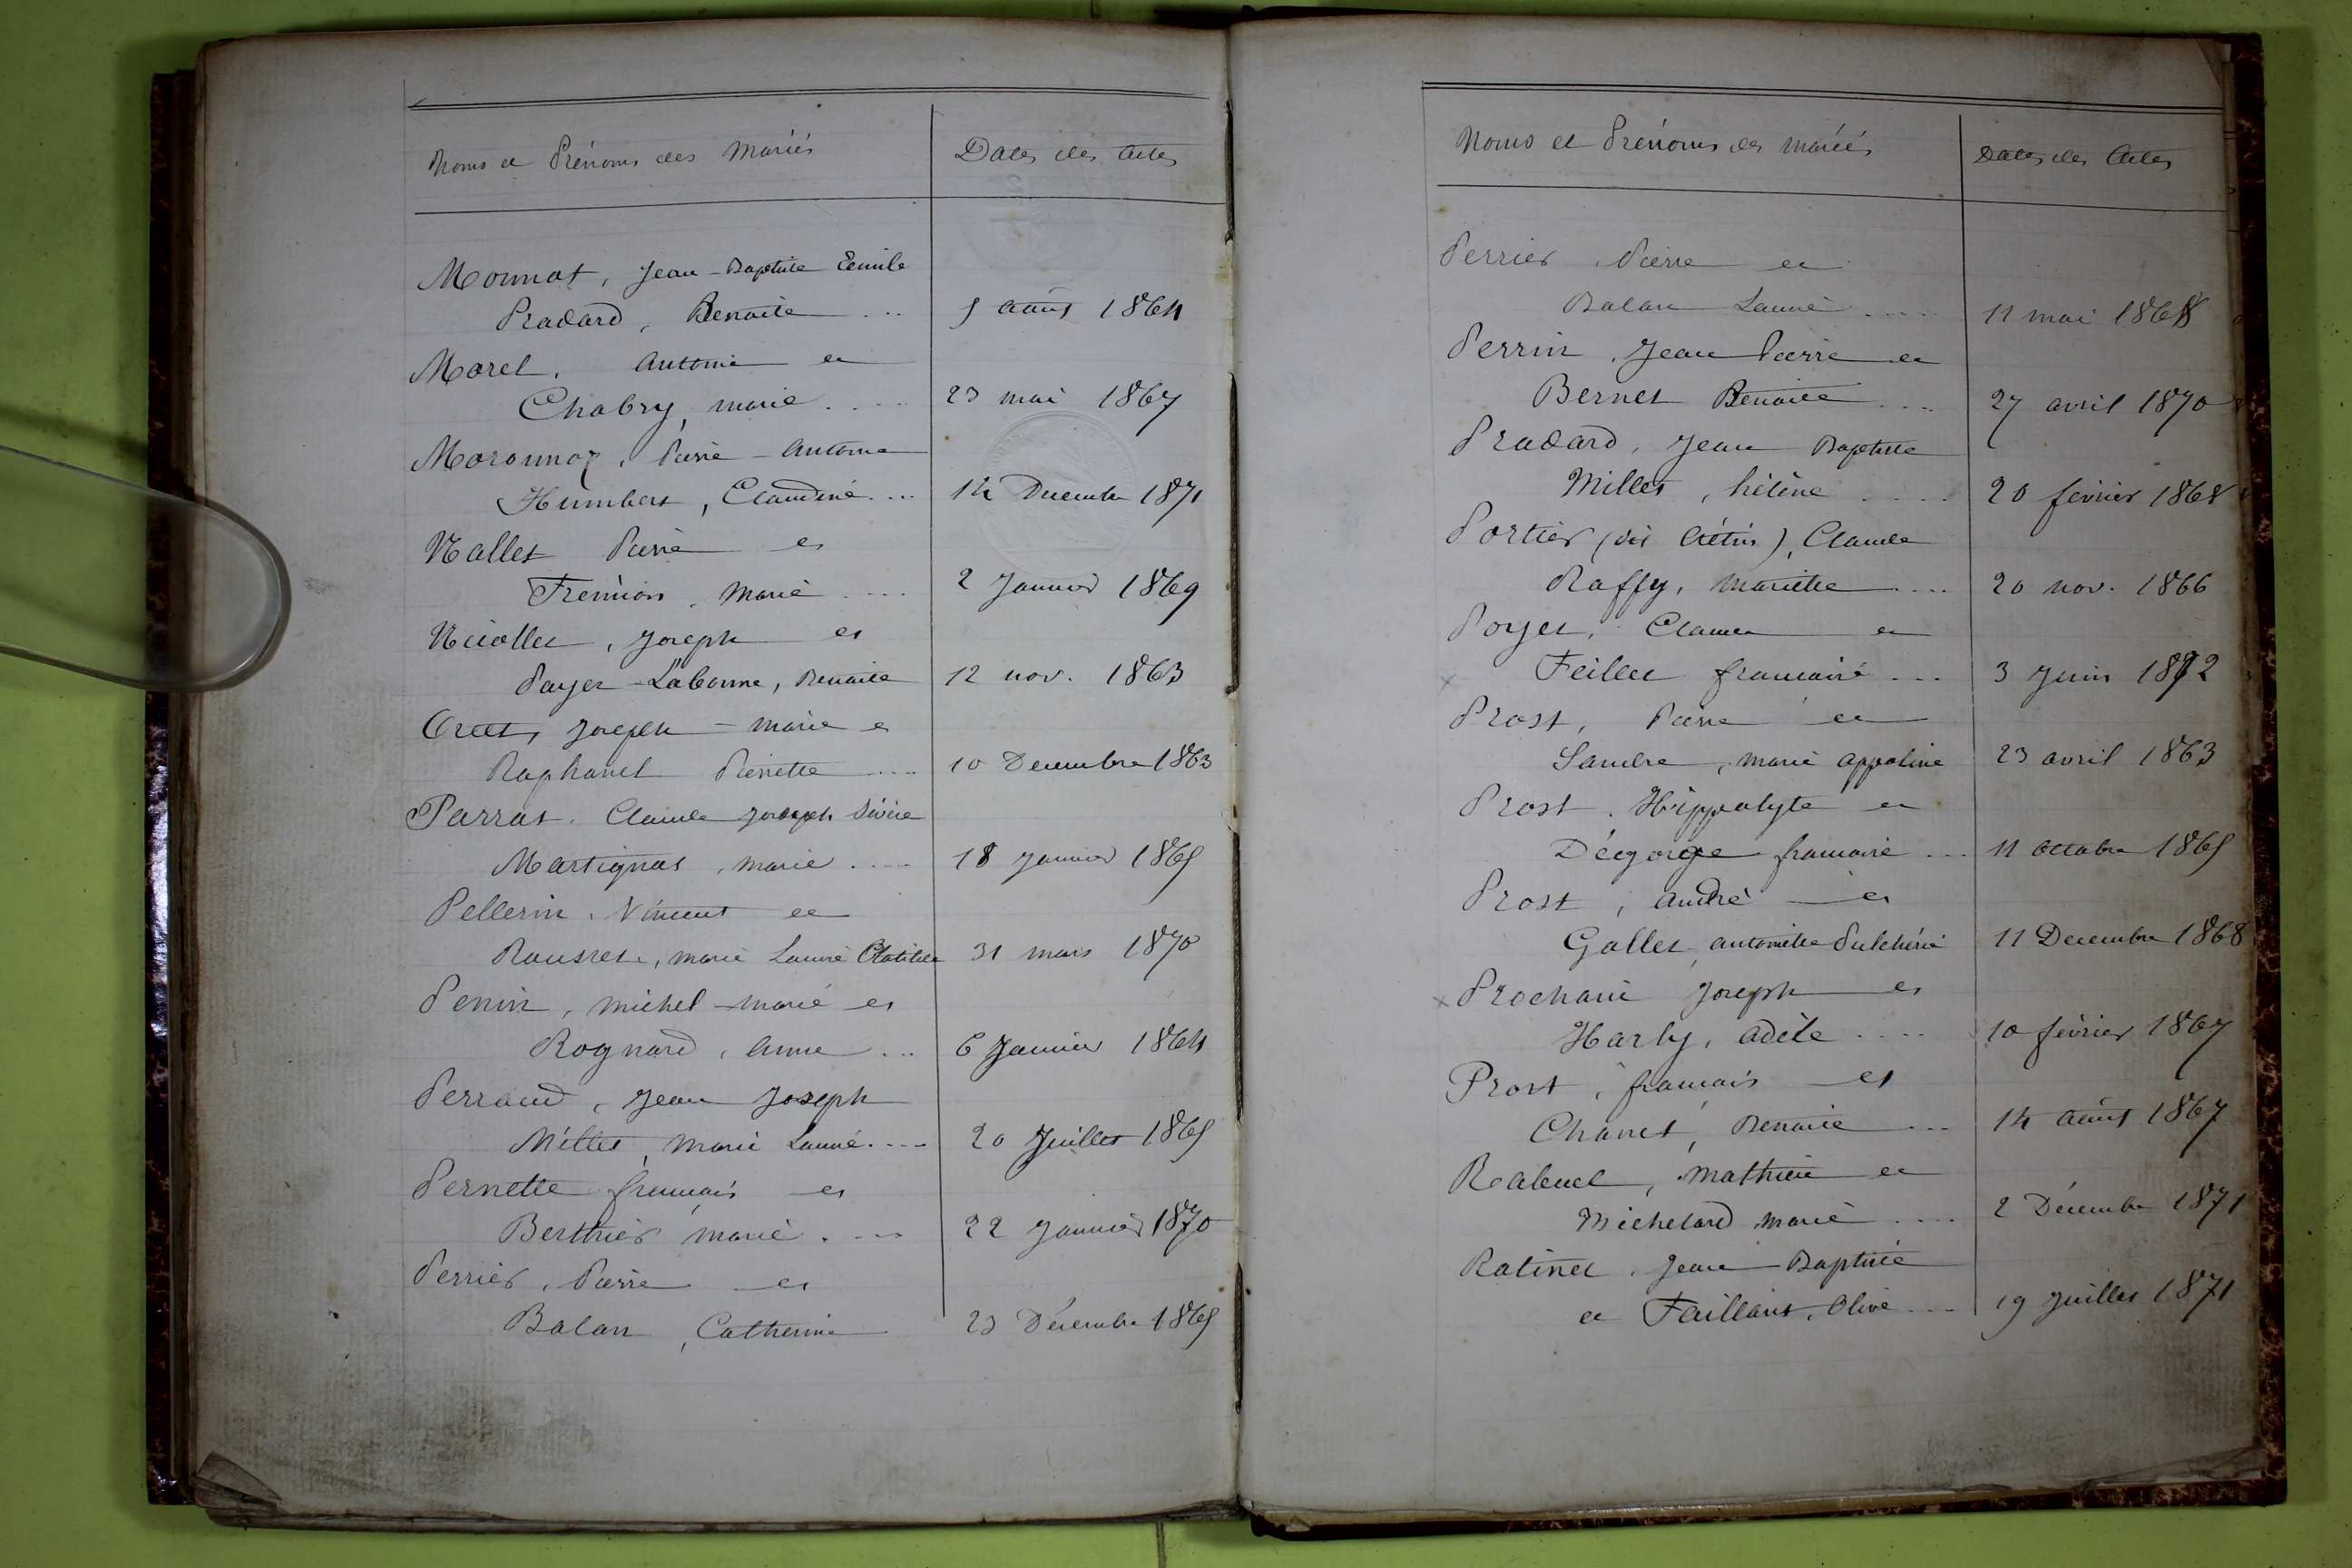 Noms et Prénoms des Mariés	Dates des Actes
Monnat, Jean-Baptiste Emile
Pradard, Benoite ... 5 août 1864
Morel, Antoine et
Chabry, Marie .... 23 mai 1867
Moronnoz, Pierre-Antoine
Humbert, Claudine ... 14 Decembre 1871
Nallet Pierre et
Frémion, Marie .... 2 Janvier 1869
Niiollet, Joseph et
Payet-Labonne, Benoite 12 nov. 1863
Orcet, Joseph-Marie et
Raphanel Pierrette .... 10 Decembre 1863
Parrat, Claude Joseph Désiré
Martignat, Marie .... 18 Janvier 1865
Pellerin, Vincent et
Rousset, Marie Laurie Clotilde 31 mars 1870
Penin, Michel-Marie et
Rognard, Anne ... 6 Janvier 1864
Perraud, Jean Joseph
Millet, Marie Laurie .... 20 Juillet 1865
Pernette françois et
Berthier Marie .... 22 Janvier 1870
Perrier, Pierre et
Balan, Catherine 23 Décembre 1865
Noms et Prénoms des mariés	Dates des Actes
Perrier Pierre et
Balan Laurie .... 11 mai 1868
Perrin, Jean Pierre et
Bernet Benoite .... 27 avril 1870
Pradard, Jean Baptiste
Millet, hélène .... 20 février 1868
Portier (dit Crétin), Claude
Raffy, Mariette .... 20 nov. 1866
Poyet, Claude et
x Feillet françoise ... 3 Juin 1872
Prost, Pierre et
Sandre, Marie Appoline 23 avril 1863
Prost, Hippolyte et
Dégorge françoise ... 11 Octobre 1865
Prost, André et
Gallet, antoinette Pulchérie 11 Decembre 1868
x Prochani Joseph et
Harly, Adèle .... 10 février 1867
Prost, françois et
Chanet, Benoite ... 14 août 1867
Rabuel, Mathieu et
Michelard Marie .... 2 Décembre 1871
Ratinet, Jean-Baptiste
et Faillant, Olive ... 19 Juillet 1871